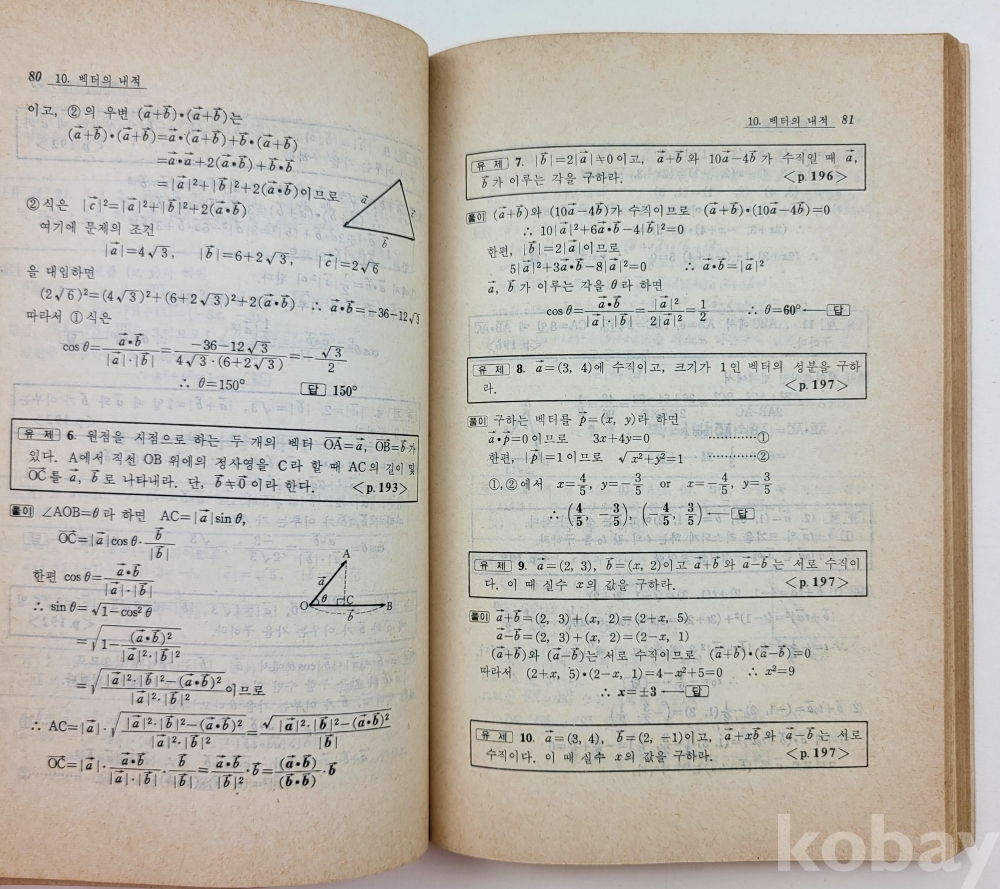 80 10. 벡터의 내적
이고, ②의 우변 (a⃗+b⃗)•(a⃗+b⃗)는
(a⃗+b⃗)•(a⃗+b⃗)=a⃗•(a⃗+b⃗)+b⃗•(a⃗+b⃗)
=a⃗•a⃗+2(a⃗•b⃗)+b⃗•b⃗
=|a⃗|²+|b⃗|²+2(a⃗•b⃗)이므로
②식은 |c⃗|²=|a⃗|²+|b⃗|²+2(a⃗•b⃗)
여기에 문제의 조건
|a⃗|=4√3, |b⃗|=6+2√3, |c⃗|=2√6
을 대입하면
(2√6)²=(4√3)²+(6+2√3)²+2(a⃗•b⃗) ∴ a⃗•b⃗=-36-12√3
따라서 ①식은
cosθ=a⃗•b⃗/|a⃗|·|b⃗|=-36-12√3/4√3·(6+2√3)=-√3/2
∴ θ=150° 답 150°
a⃗
c⃗
b⃗
유제 6. 원점을 시점으로 하는 두 개의 벡터 OA⃗=a⃗, OB⃗=b⃗가
있다. A에서 직선 OB 위에의 정사영을 C라 할 때 AC의 길이 및
OC⃗를 a⃗, b⃗로 나타내라. 단, b⃗≠0⃗이라 한다. <p.193>
풀이 ∠AOB=θ라 하면 AC=|a⃗|sinθ,
OC⃗=|a⃗|cosθ·b⃗/|b⃗|
한편 cosθ=a⃗•b⃗/|a⃗|·|b⃗|
∴ sinθ=√(1-cos²θ)
=√(1-(a⃗•b⃗)²/|a⃗|²·|b⃗|²)
=√(|a⃗|²·|b⃗|²-(a⃗•b⃗)²/|a⃗|²·|b⃗|²)이므로
∴ AC=|a⃗|·√(|a⃗|²·|b⃗|²-(a⃗•b⃗)²/|a⃗|²·|b⃗|²)=√(|a⃗|²·|b⃗|²-(a⃗•b⃗)²)/|b⃗|
OC⃗=|a⃗|·a⃗•b⃗/|a⃗|·|b⃗|·b⃗/|b⃗|=a⃗•b⃗/|b⃗|²·b⃗=(a⃗•b⃗)/(b⃗•b⃗)·b⃗
A
a⃗
θ
O C B
b⃗
10. 벡터의 내적 81
유제 7. |b⃗|=2|a⃗|≠0이고, a⃗+b⃗와 10a⃗-4b⃗가 수직일 때 a⃗,
b⃗가 이루는 각을 구하라. <p.196>
풀이 (a⃗+b⃗)와 (10a⃗-4b⃗)가 수직이므로 (a⃗+b⃗)•(10a⃗-4b⃗)=0
∴ 10|a⃗|²+6a⃗•b⃗-4|b⃗|²=0
한편, |b⃗|=2|a⃗|이므로
5|a⃗|²+3a⃗•b⃗-8|a⃗|²=0 ∴ a⃗•b⃗=|a⃗|²
a⃗, b⃗가 이루는 각을 θ라 하면
cosθ=a⃗•b⃗/|a⃗|·|b⃗|=|a⃗|²/2|a⃗|²=1/2 ∴ θ=60°—답
유제 8. a⃗=(3, 4)에 수직이고, 크기가 1인 벡터의 성분을 구하
라. <p.197>
풀이 구하는 벡터를 p⃗=(x, y)라 하면
a⃗•p⃗=0이므로 3x+4y=0 ……………①
한편, |p⃗|=1이므로 √(x²+y²)=1 ……………②
①,②에서 x=4/5, y=-3/5 or x=-4/5, y=3/5
∴ (4/5, -3/5), (-4/5, 3/5)—답
유제 9. a⃗=(2, 3), b⃗=(x, 2)이고 a⃗+b⃗와 a⃗-b⃗는 서로 수직이
다. 이 때 실수 x의 값을 구하라. <p.197>
풀이 a⃗+b⃗=(2, 3)+(x, 2)=(2+x, 5)
a⃗-b⃗=(2, 3)-(x, 2)=(2-x, 1)
(a⃗+b⃗)와 (a⃗-b⃗)는 서로 수직이므로 (a⃗+b⃗)•(a⃗-b⃗)=0
따라서 (2+x, 5)•(2-x, 1)=4-x²+5=0 ∴ x²=9
∴ x=±3—답
유제 10. a⃗=(3, 4), b⃗=(2, -1)이고, a⃗+xb⃗와 a⃗-b⃗는 서로
수직이다. 이 때 실수 x의 값을 구하라. <p.197>
kobay